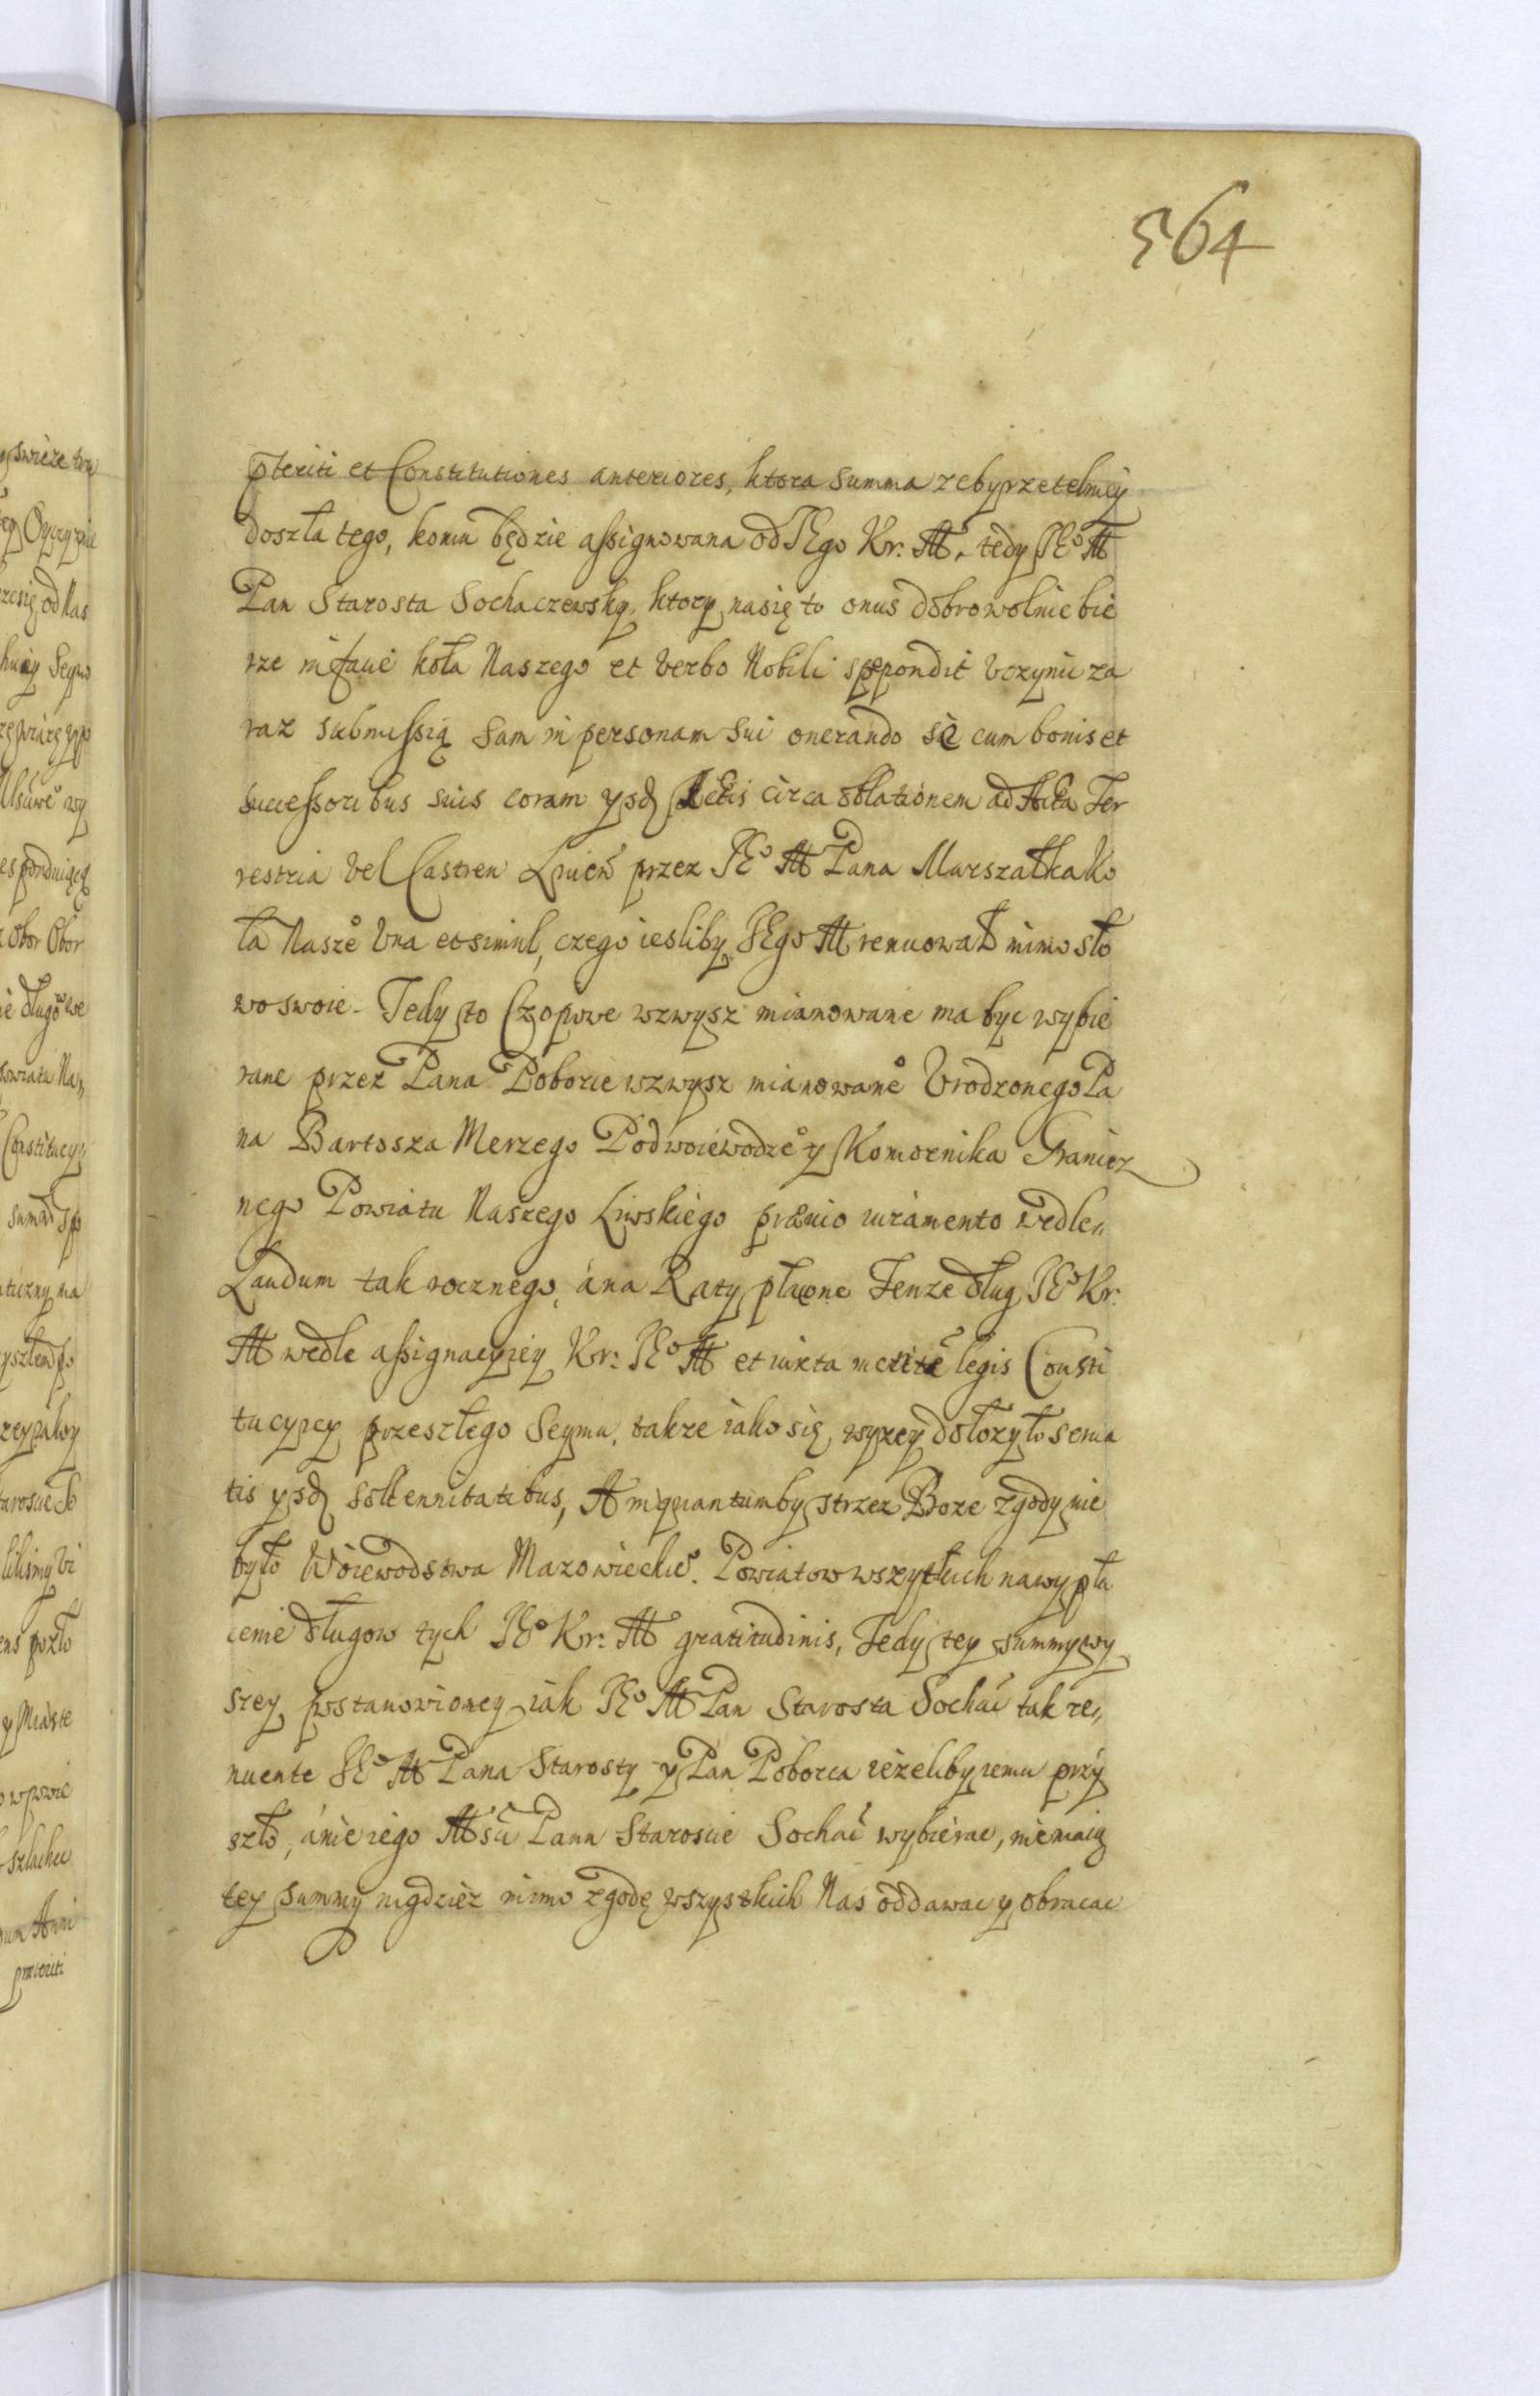 564
pteriti et Constitutiones anteriores, ktora summa zeby rzetelniey
doszła tego, komu będzie assignowana od JEgo Kr: M. tedy JEº M
Pan Starosta Sochaczewsky, ktory na się to onus dobrowolnie bie
rze in facie koła Naszego et verbo Nobili spopondit vczynic za
raz submissią sam in personam sui onerando se cum bonis et
successoribus suis coram ysd Actis circa oblationem ad Acta Ter
restria vel Castren Liwen przez JEº M Pana Marszałka Ko
ła Naszeº vna et simul, czego iesliby JEgo M renuował mimo sło
wo swoie. Tedy to Czopowe wzwysz mianowane ma byc wybie
rane przez Pana Poborce wzwysz mianowaneº Vrodzonego Pa
na Bartosza Merzego Podwoiewodzeº y Komornika Granicz
nego Powiatu Naszego Liwskiego prævio iuramento wedle„
Laudum tak rocznego, á na Raty płacone Tenze dług JEº Kr:
M wedle assignacyiey Kr: JEº M et iuxta mentē legis Consti
tucyiey przeszłego Seymu, takze iako się wyzey dołozyło serua
tis ysd sollennitatibus, A in quantum by strzez Boze zgody nie
było Woiewodstwa Mazowieckieº. Powiatow wszytkich na wypła
cenie długow tych JEº Kr: M gratitudinis, Tedy tey summy wy
szey postanowioney iak JEº M Pan Starosta Sochač tak re„
nuente JEº M Pana Starosty y Pan Poborca iezeliby iemu przy
szło, á nie iego Msči Panu Staroscie Sochač wybierac, nie maią
tey summy nigdziez mimo zgodę wszystkich Nas oddawac y obracac